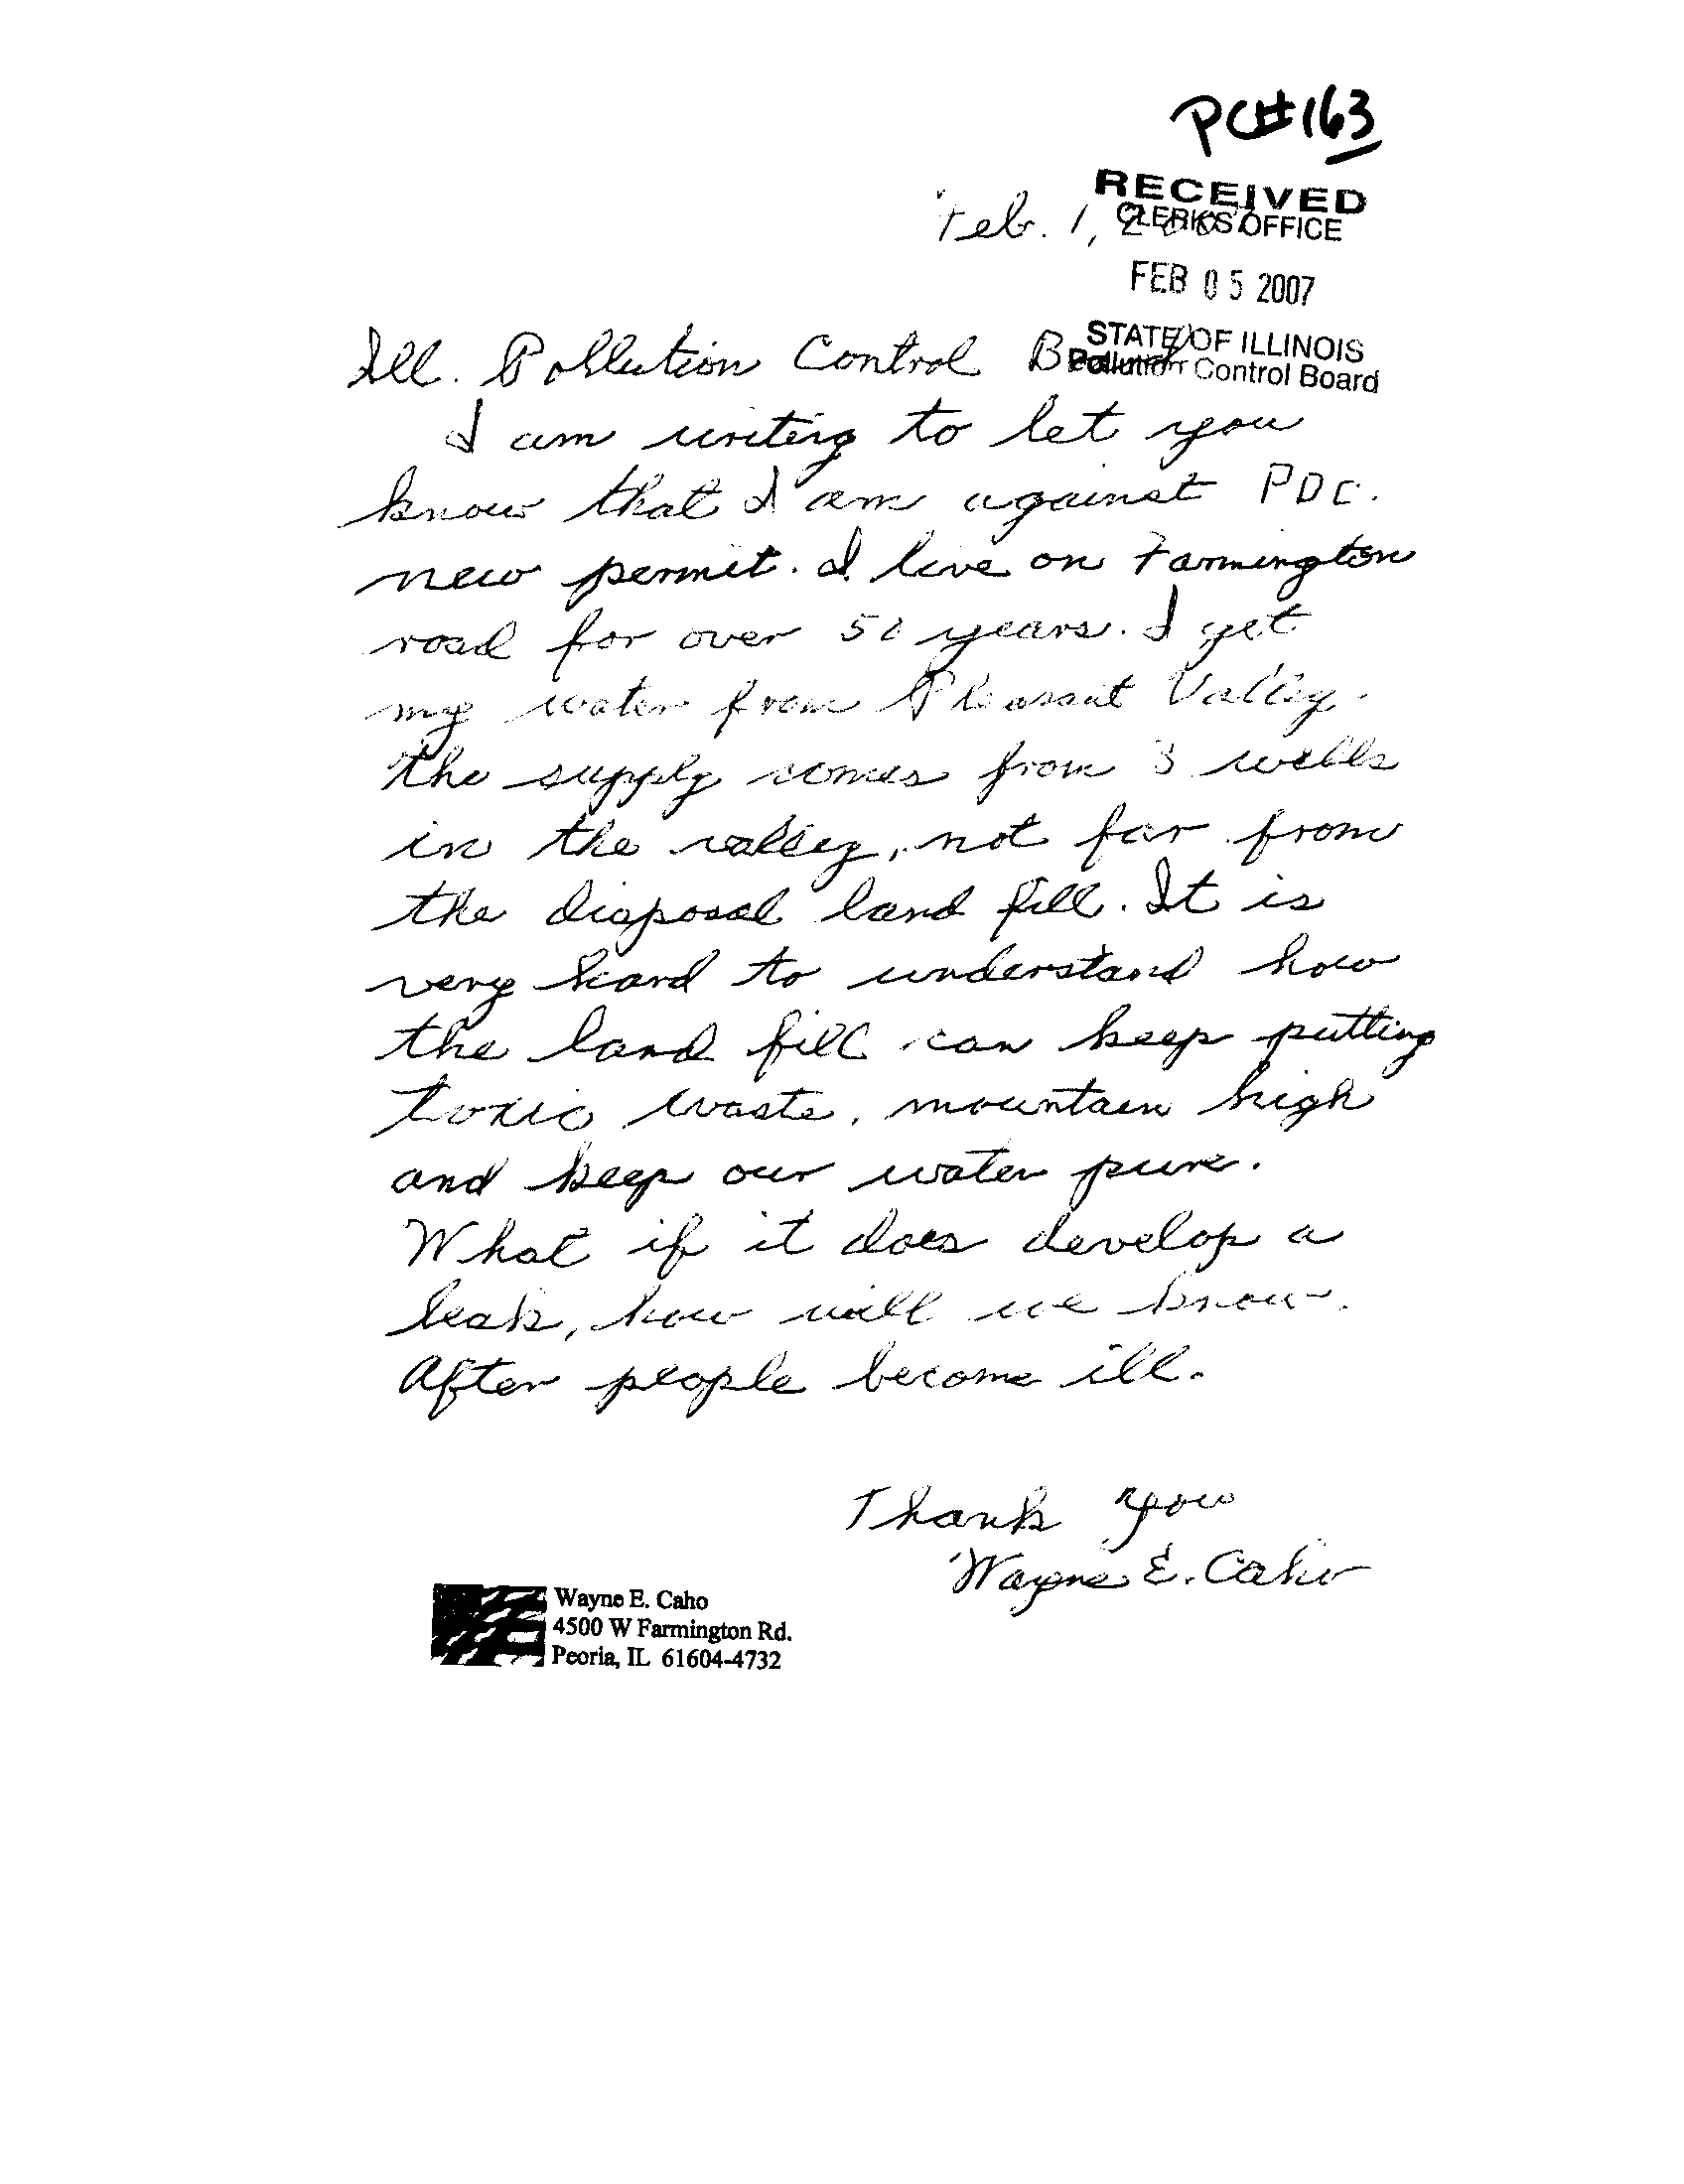 PC#163
RECEIVED
CLERK'S OFFICE
Feb. 1, 2007
FEB 05 2007
STATE OF ILLINOIS
Pollution Control Board
Ill. Pollution Control Board
I am writing to let you
know that I am against PDC.
new permit. I live on Farmington
road for over 50 years. I get
my water from Pleasant Valley.
the supply comes from 3 wells
in the valley, not far from
the disposal land fill. It is
very hard to understand how
the land fill can keep putting
toxic waste, mountain high
and keep our water pure.
What if it does develop a
leak, how will we know.
After people become ill.
Thank you
Wayne E. Caho
Wayne E. Caho
4500 W Farmington Rd.
Peoria, IL 61604-4732